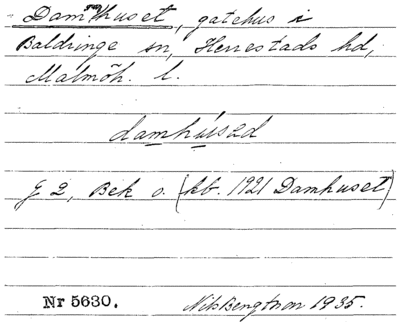 Damhuset, gatehus i
Baldringe sn, Herrestads hd,
Malmöh. l.
damhúsəd
g 2, Bek o. (kb. 1921 Damhuset)
Nr 5630.
Nils Bengtson 1935.